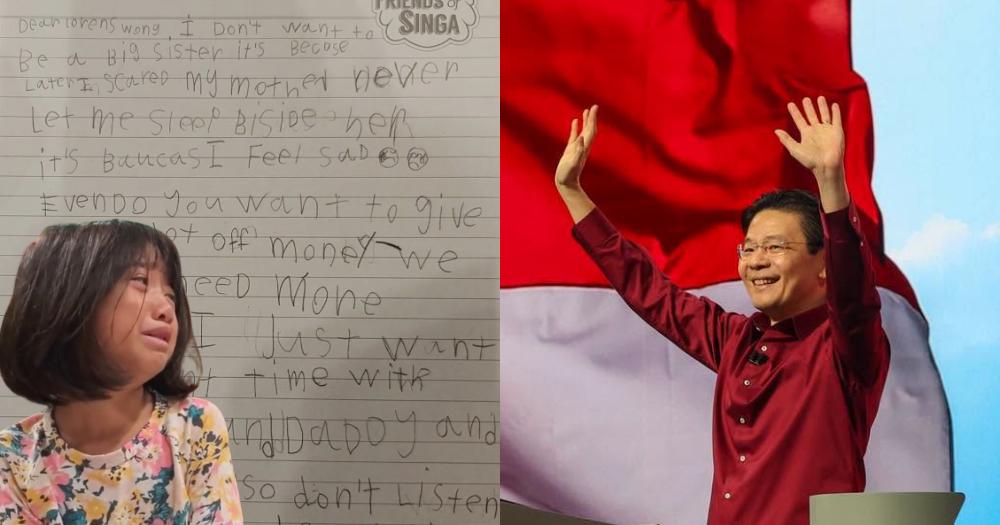 FRIENDS OF
SINGA
Dear lorens wong, I Don't want to
Be a Big sister it's Becose
Later I, scared my mother never
Let me sleep Biside her
it's BaucasI Feel sad
EvenDo you want to give
ot off money we
eed more
I Just want
t time with
and Daddy and
so don't Listen